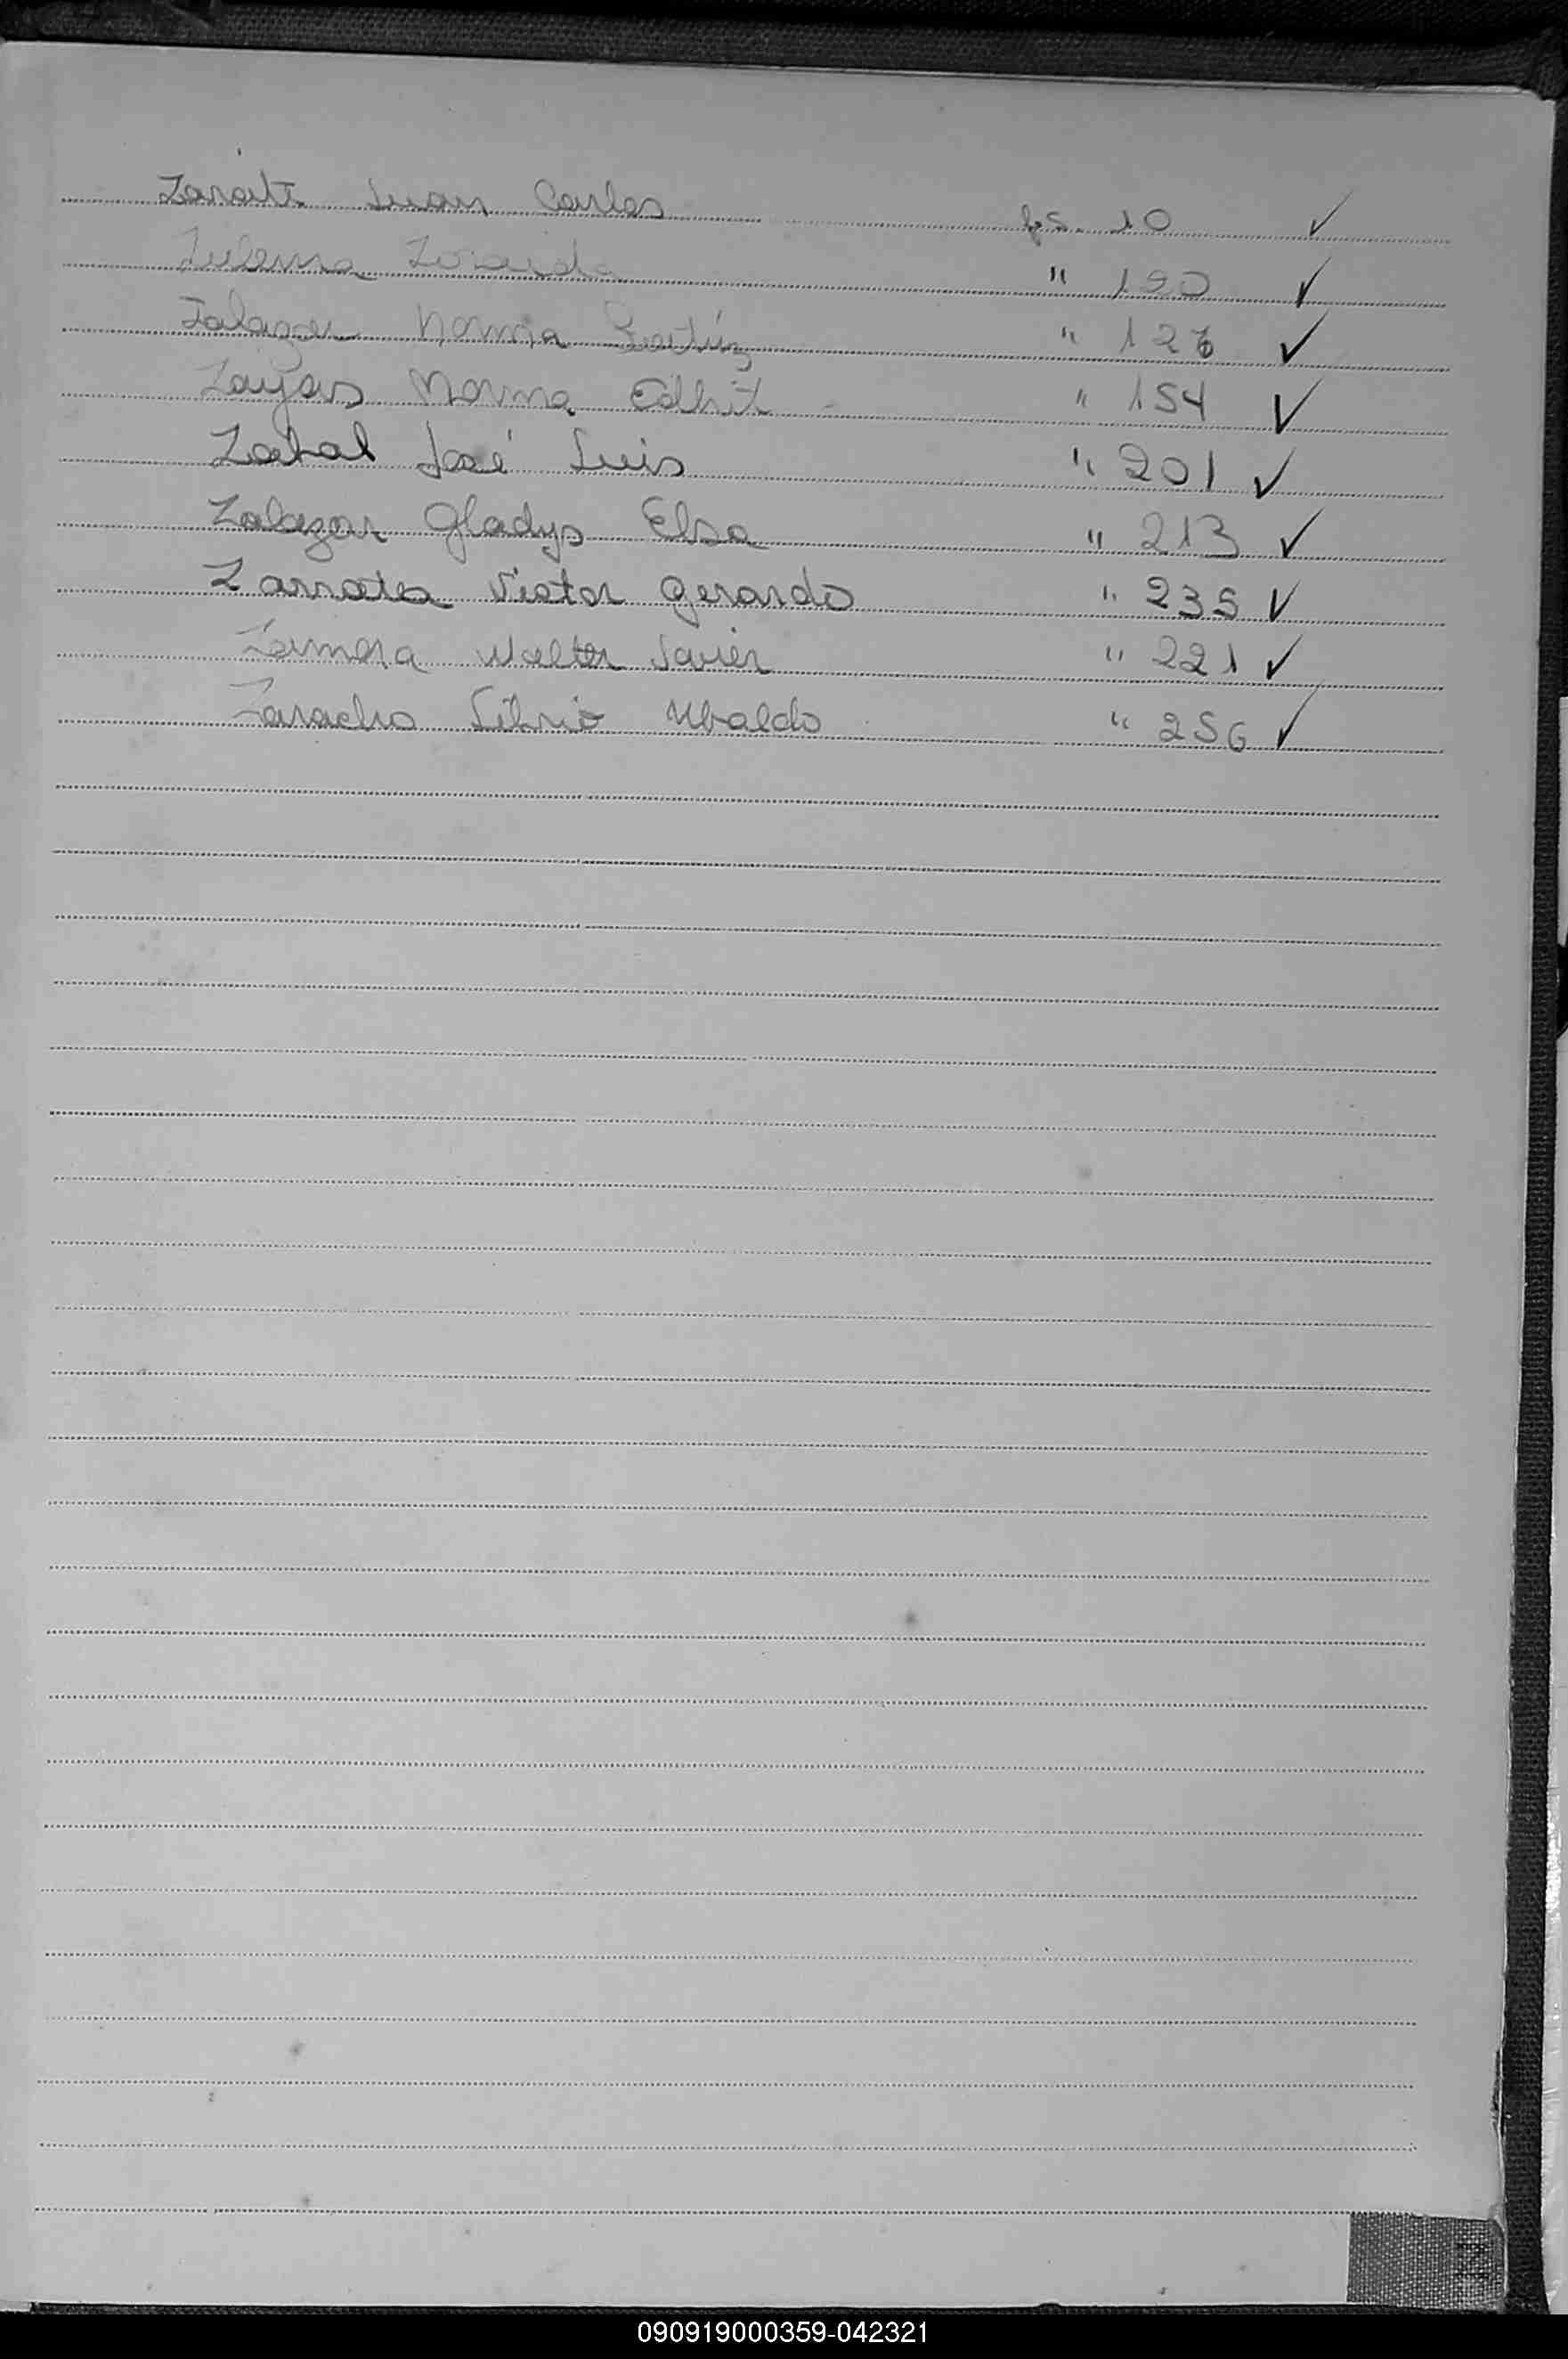 Zarate Juan Carlos fs. 10 ✓
Zulema Zoraida " 120 ✓
Zalazar Norma Beatriz " 126 ✓
Zayas Norma Edhit " 154 ✓
José Luis " 201 ✓
Zalazar Gladys Elsa " 213 ✓
Zarratea Victor Gerardo " 235 ✓
Zamora Walter Javier " 221 ✓
Zaracho Silvio Ubaldo " 256 ✓
090919000359-042321